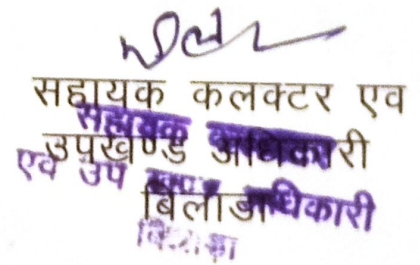 सहायक कलक्टर एव
उपखण्ड अधिकारी
बिलाडा
सहायक
एव उप खण्ड अधिकारी
बिलाडा